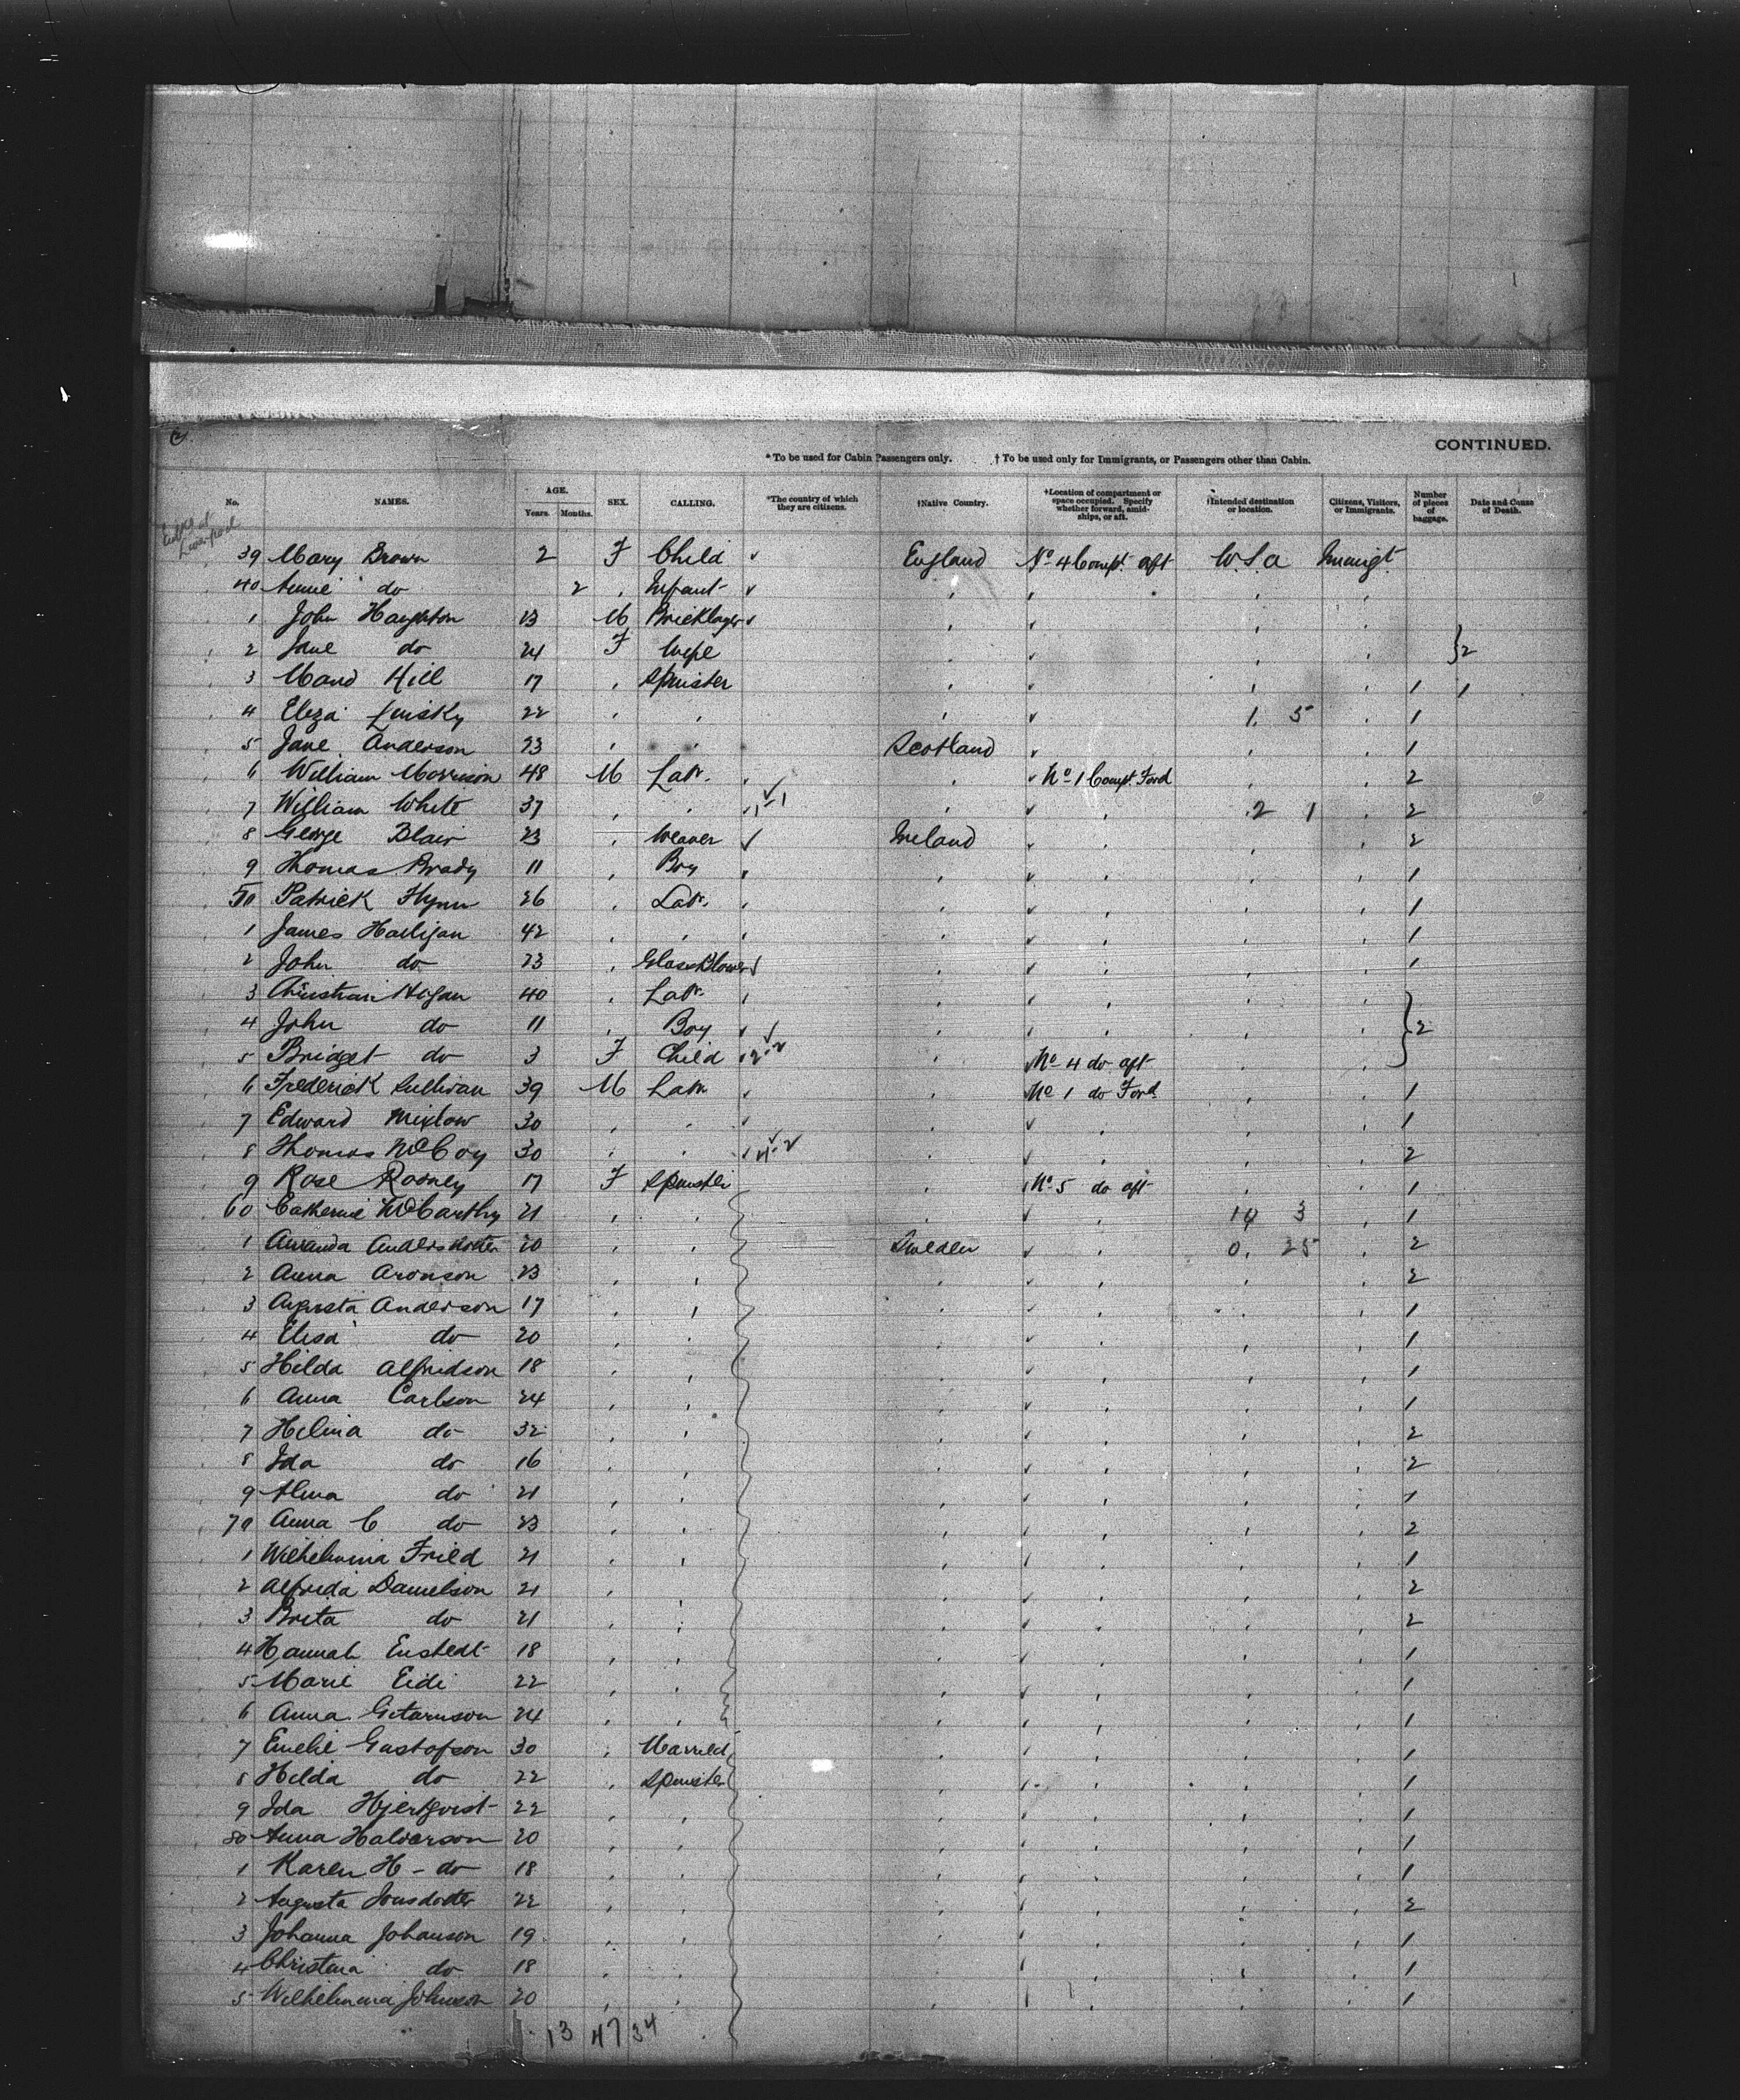 2
CONTINUED.
* To be used for Cabin Passengers only. † To be used only for Immigrants, or Passengers other than Cabin.
No. NAMES. AGE. Years. Months. SEX. CALLING. *The country of which they are citizens. †Native Country. †Location of compartment or space occupied. Specify whether forward, amidships, or aft. †Intended destination or location. Citizens, Visitors, or Immigrants. Number of pieces of baggage. Date and Cause of Death.
Liverpool
39 Mary Brown 2 F Child ✓ England No 4 Compt. aft U.S.A Immigt.
40 Annie do 2 " Infant ✓ " " " "
1 John Haughton 23 M Bricklayer ✓ " ✓ " "
2 Jane do 24 F Wife " ✓ " " } 2
3 Maud Hill 17 " Spinster " ✓ " " 1 1
4 Eliza 22 " " " ✓ 1. 5 " 1
5 Jane Anderson 23 " " Scotland ✓ " " 1
6 William Morrison 48 M Labr. " " ✓ No 1 Compt. Ford " " 2
7 William White 37 " " " ✓ " 2 1 " 2
8 George Blair 23 " Weaver ✓ Ireland ✓ " " " 2
9 Thomas Brady 11 " Boy " " ✓ " " " 1
50 Patrick Flynn 26 " Labr. " " ✓ " " " 1
1 James Halligan 42 " " " " ✓ " " " 1
2 John do 23 " Glassblower ✓ " ✓ " " " 1
3 Christian Hogan 40 " Labr. " " ✓ " " "
4 John do 11 " Boy ✓ " ✓ " " " } 2
5 Bridget do 3 F Child 2-2 " No 4 do aft " "
6 Frederick Sullivan 39 M Labr. ✓ " No 1 do Ford " " 1
7 Edward 30 " " ✓ " ✓ " " " 1
8 Thomas McCoy 30 " " ✓ " ✓ " " " 2
9 Rose Rooney 17 F Spinster " No 5 do aft " " 1
60 Catherine McCarthy 21 " " " ✓ " 10 3 " 1
1 Amanda Andersdotter 20 " " Sweden ✓ " 0. 25 " 2
2 Anna Aronson 23 " " " ✓ " " " 2
3 Augusta Anderson 17 " " " ✓ " " " 1
4 Elisa do 20 " " " ✓ " " " 1
5 Hilda Alfridson 18 " " " ✓ " " " 1
6 Anna Carlson 24 " " " ✓ " " " 1
7 Helina do 32 " " " ✓ " " " 2
8 Ida do 16 " " " ✓ " " " 2
9 Alma do 21 " " " ✓ " " " 1
70 Anna C do 23 " " " ✓ " " " 2
1 Wilhelmina Fried 21 " " " ✓ " " " 1
2 Alfrida Danielson 21 " " " ✓ " " " 2
3 Brita do 21 " " " ✓ " " " 2
4 Hannah Enstedt 18 " " " ✓ " " " 1
5 Marie Eidi 22 " " " ✓ " " " 1
6 Anna 24 " " " ✓ " " " 1
7 Emelie Gustafson 30 " Married " ✓ " " " 1
8 Hilda do 22 " Spinster " " " " " 1
9 Ida Hjertqvist 22 " " " " " " " 1
80 Anna Halvorson 20 " " " " " " " 1
1 Karen H - do 18 " " " " " " " 1
2 Augusta Jonsdotter 22 " " " " " " " 2
3 Johanna Johanson 19 " " " " " " " 1
4 Christina do 18 " " " " " " " 1
5 Wilhelmina Johnson 20 " " " " " " " 1
13 47 34